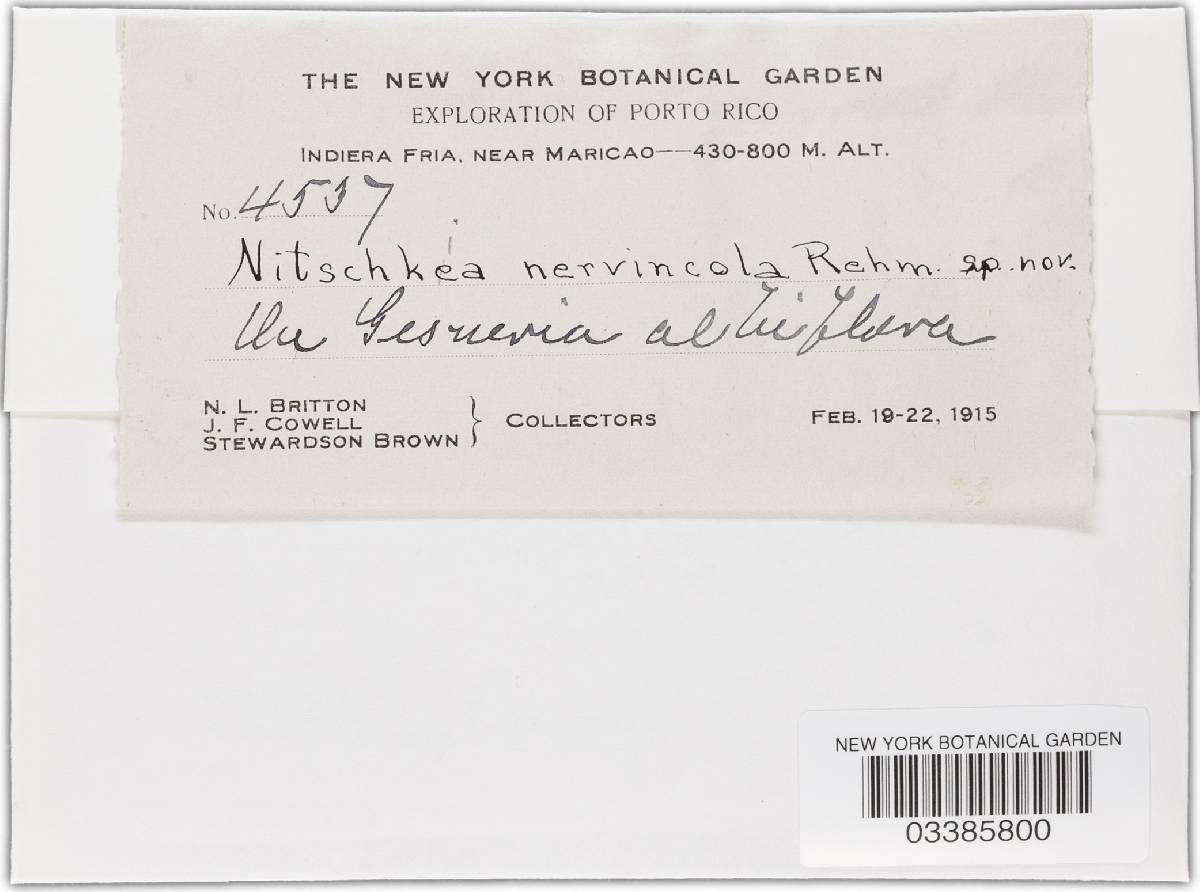 THE NEW YORK BOTANICAL GARDEN
EXPLORATION OF PORTO RICO
INDIERA FRIA, NEAR MARICAO—430-800 M. ALT.
No. 4537
Nitschkea nervincola Rehm. sp. nov.
On Gesneria albiflora
N. L. BRITTON
J. F. COWELL
STEWARDSON BROWN
COLLECTORS
FEB. 19-22, 1915
NEW YORK BOTANICAL GARDEN
03385800